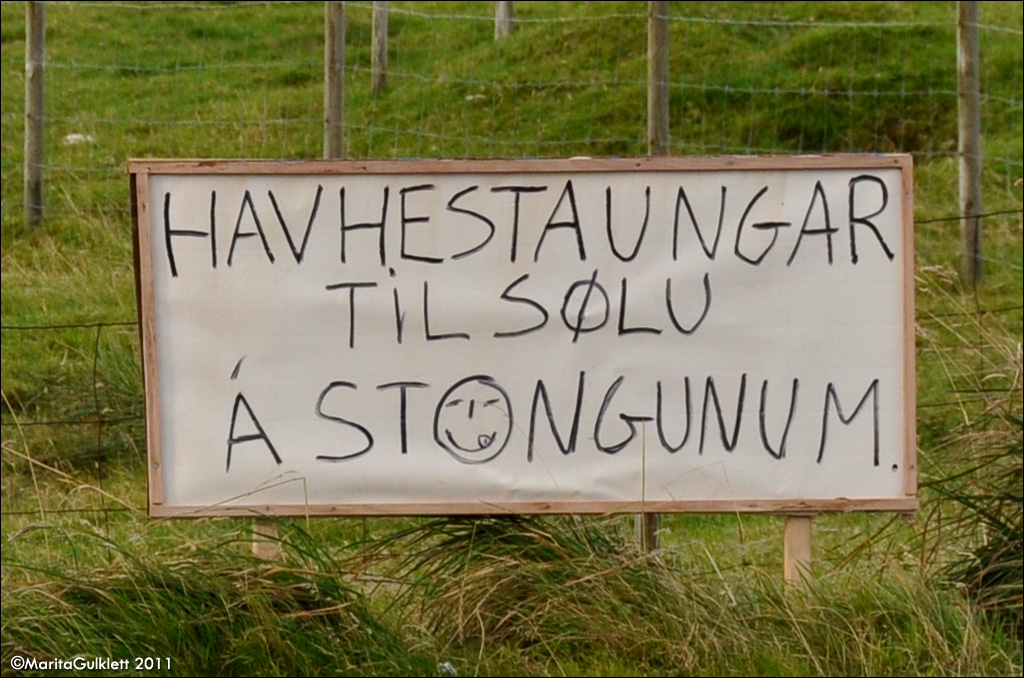 HAVHESTAUNGAR
TIL SØLU
Á STONGUNUM
©MaritaGulklett 2011